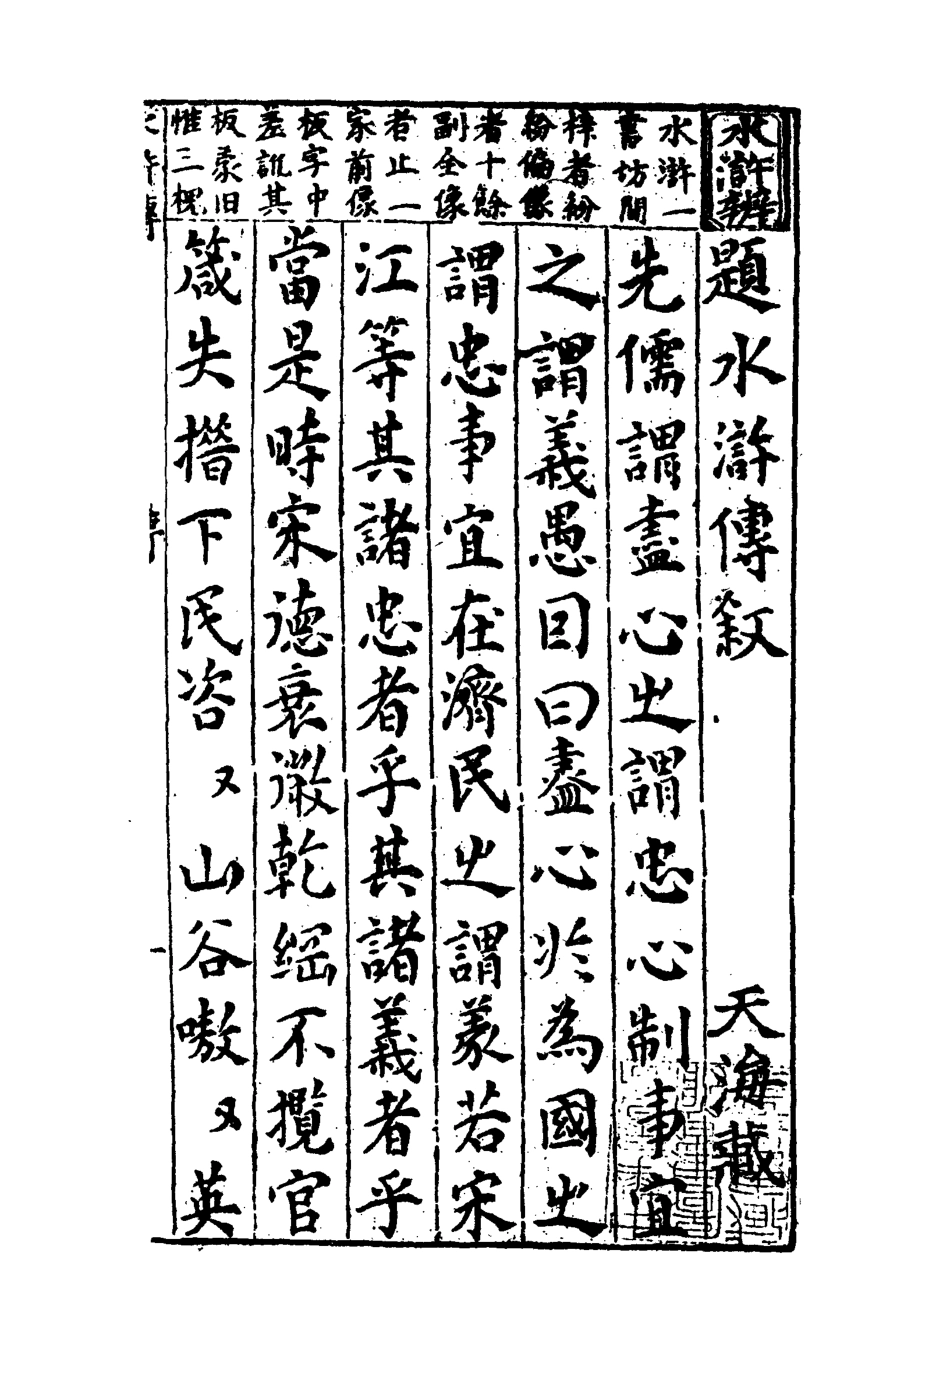 水滸辨
水滸一
書坊間
梓者紛
紛偏像
者十餘
副全像
者止一
家前像
板字中
差訛其
板蒙旧
惟三槐
題水滸傳敘　天海藏
先儒謂盡心之謂忠心制事宜
之謂義愚因曰盡心於為國之
謂忠事宜在濟民之謂義若宋
江等其諸忠者乎其諸義者乎
當是時宋德衰微乾綱不攬官
箴失措下民咨々山谷嗷々英